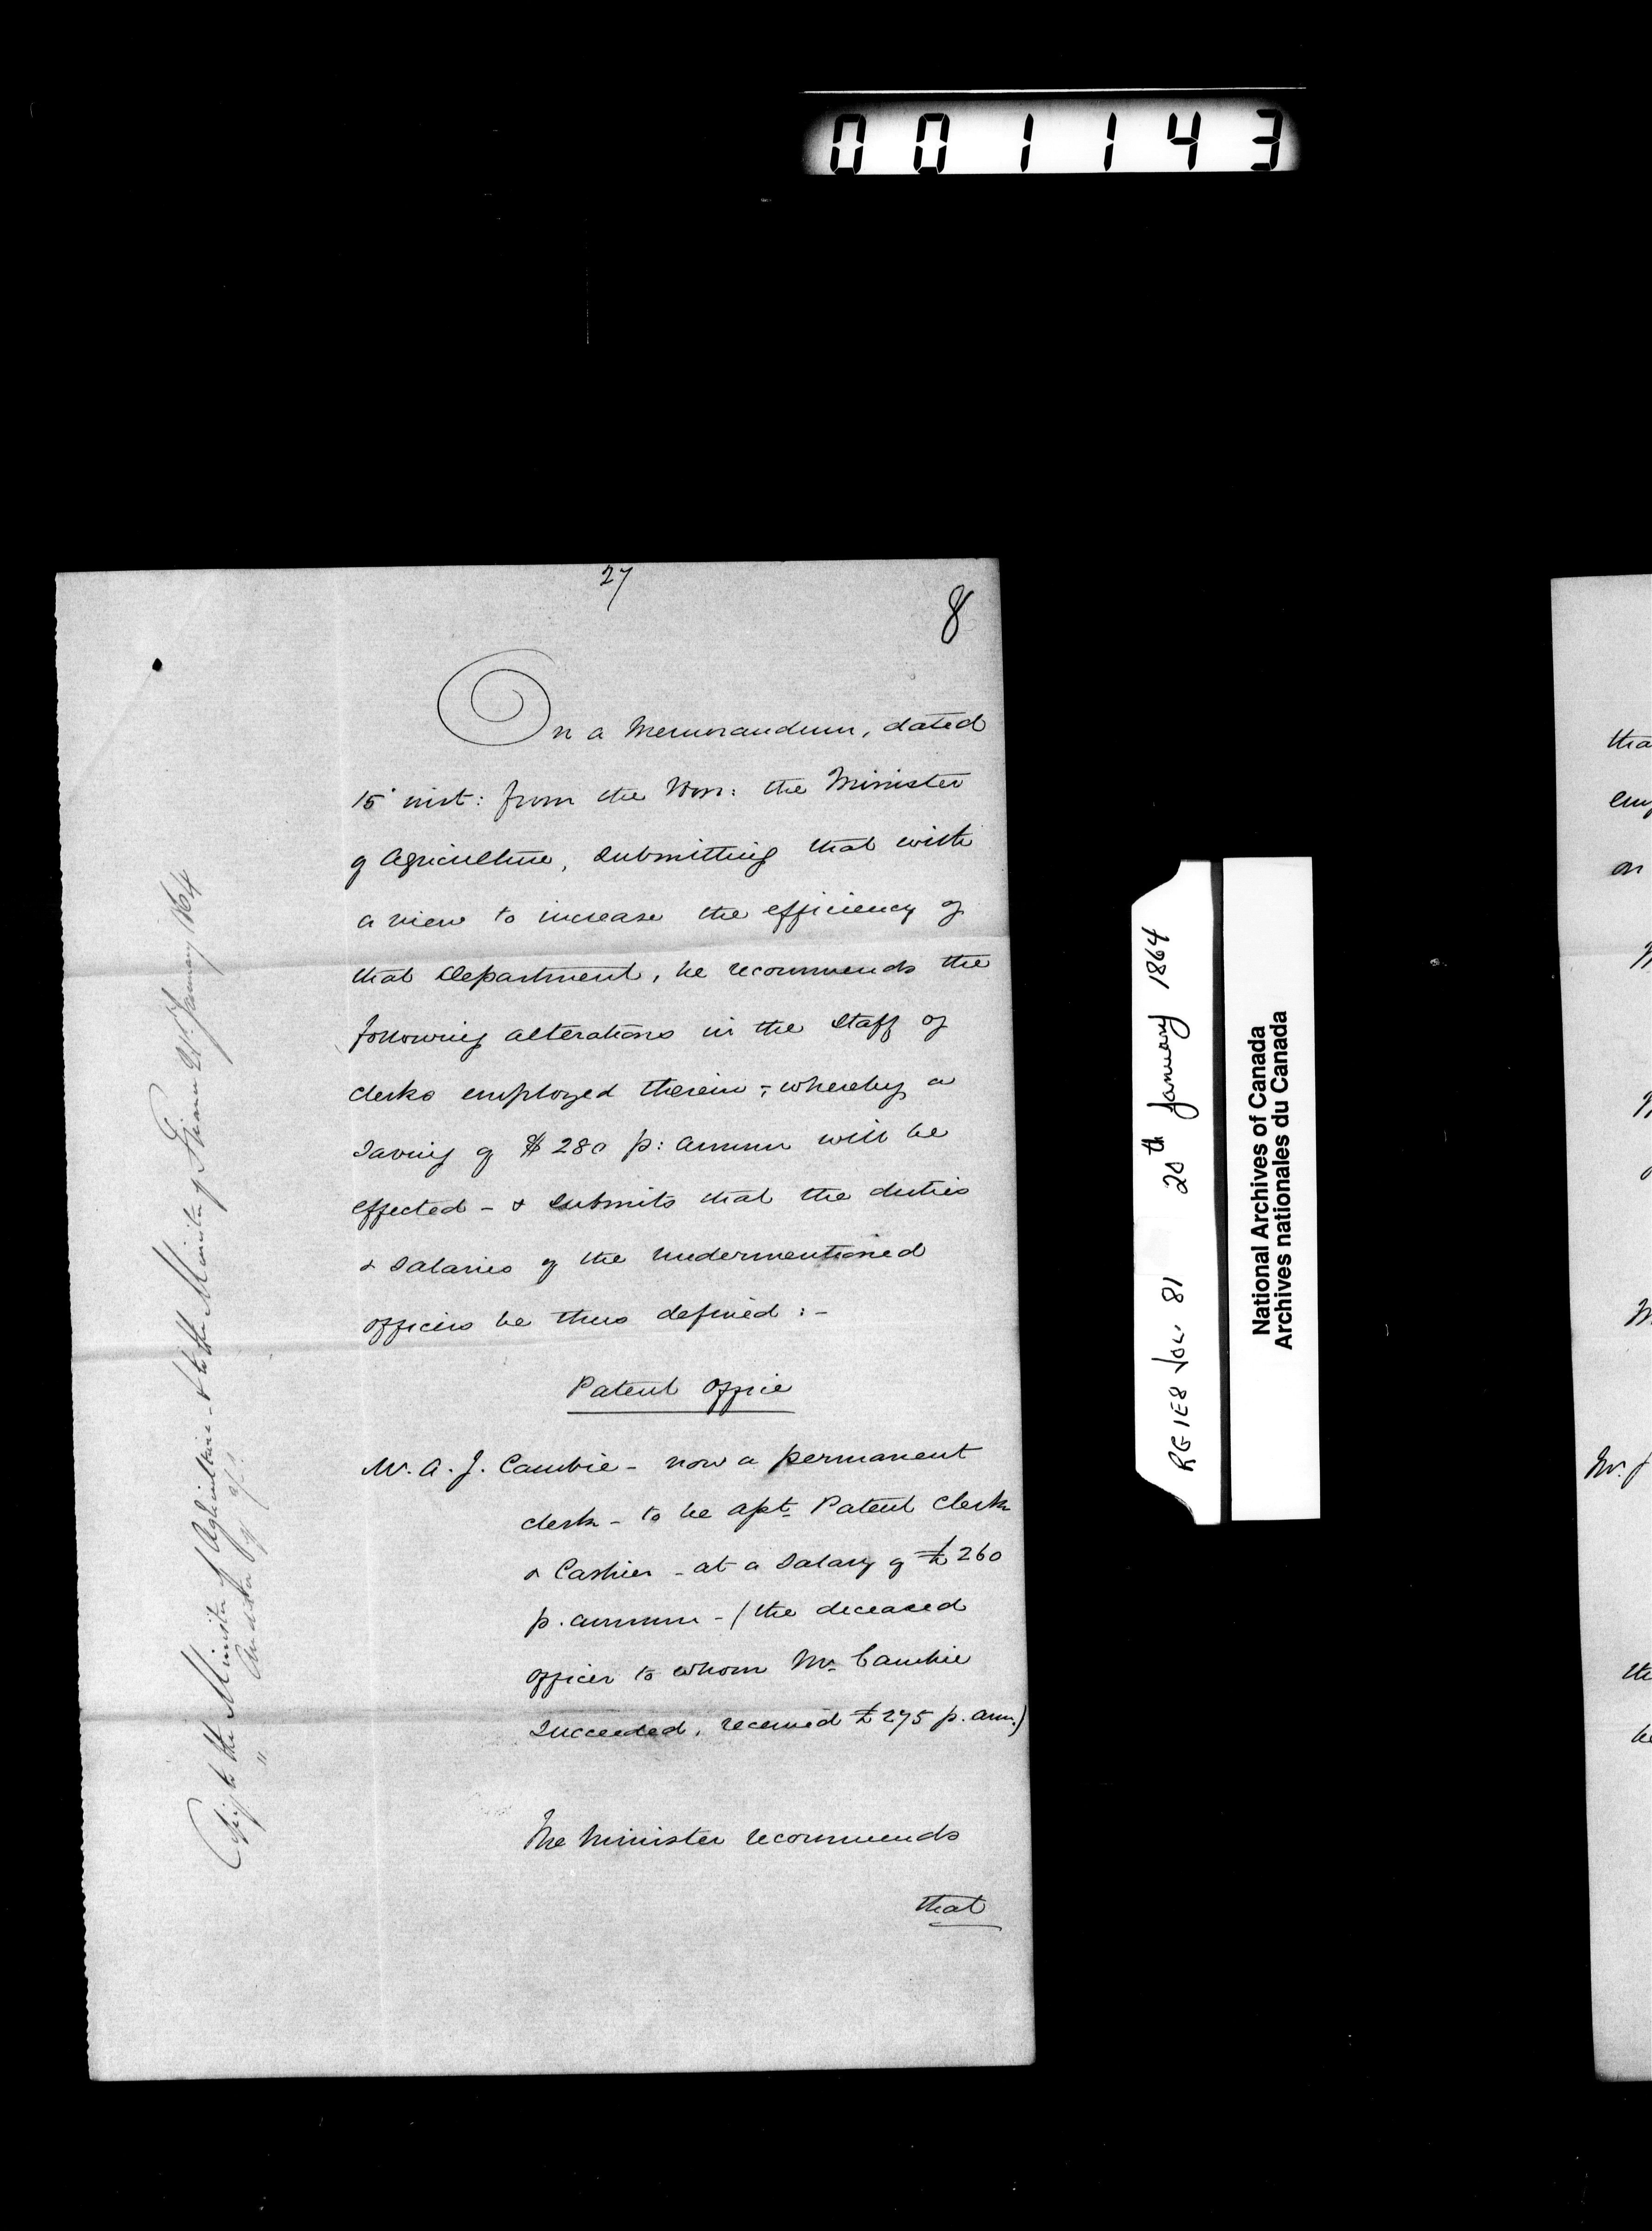 001143
27
8
On a Memorandum, dated
15' inst: from the Hon: the Minister
of Agriculture, submitting that with
a view to increase the efficiency of
that Department, he recommends the
following alterations in the Staff of
clerks employed therein; whereby a
saving of $280 p: annum will be
effected - & submits that the duties
& salaries of the undermentioned
officers be thus defined:-
Patent Office
Mr. A. J. Cambie - now a permanent
clerk - to be apt. Patent Clerk
& Cashier - at a Salary of £260
p. annum - (the deceased
officer to whom Mr. Cambie
succeeded, received £275 p. ann.)
The Minister recommends
that
to the Minister of Agriculture - & to the Minister of Finance 21st January 1864
" Auditor
RG1E8 Vol. 81 20th January 1864
National Archives of Canada
Archives nationales du Canada
tha
on
Mr. J